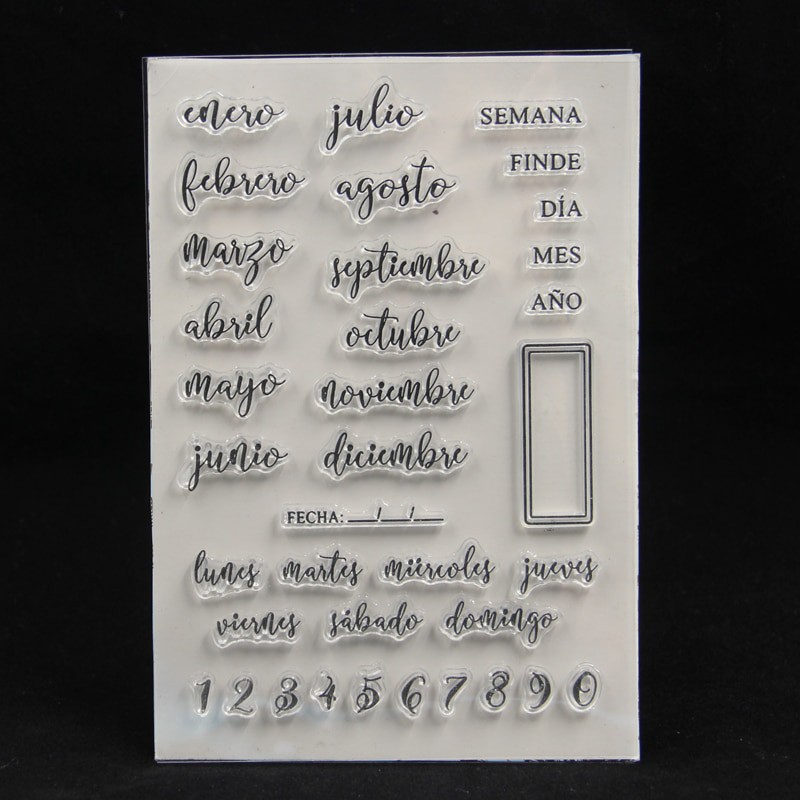 enero
febrero
marzo
abril
mayo
junio
julio
agosto
septiembre
octubre
noviembre
diciembre
SEMANA
FINDE
DÍA
MES
AÑO
FECHA: ___/___/___
lunes martes miércoles jueves
viernes sábado domingo
1 2 3 4 5 6 7 8 9 0